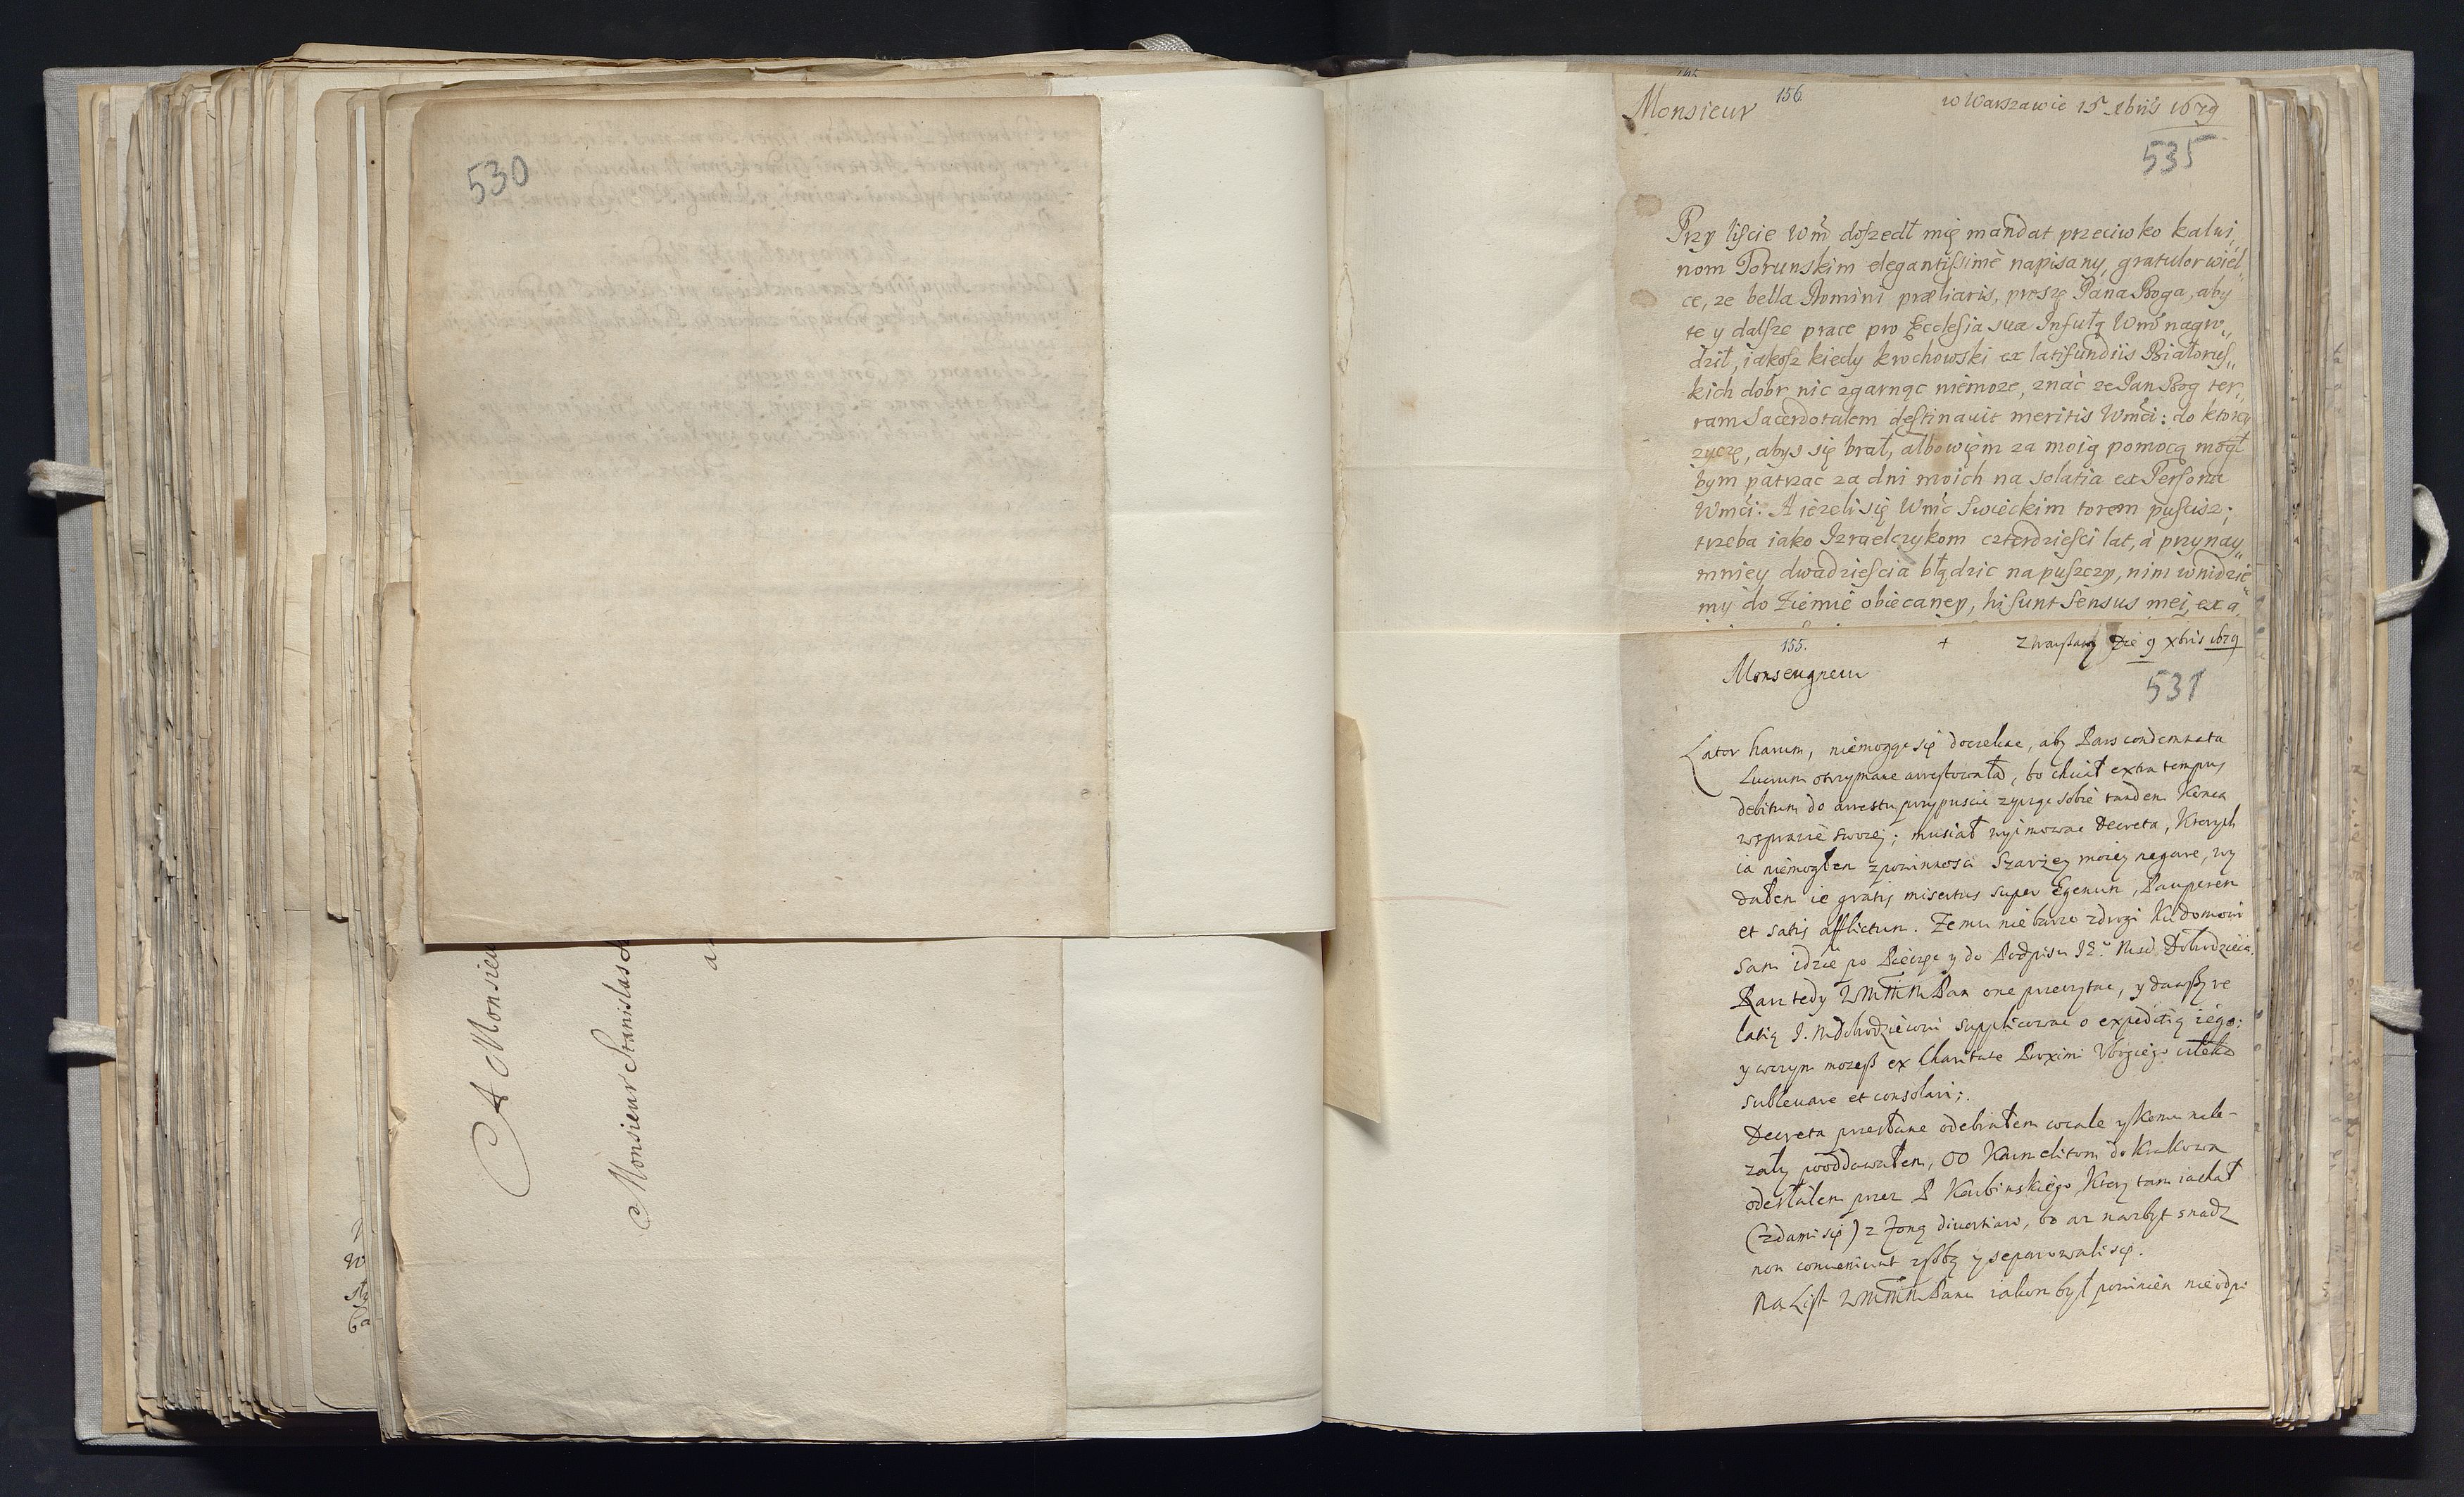 530
A Monsieu
Monsieur Stanislas
156.
Monsieur
w Warszawie 15 xbris 1679
535
Przy liście Wm̃ doszedł mię mandat przeciwko kalwi,,
nom Toruńskim elegantissimè napisany, gratulor wiel,,
ce, że bella Domini præliaris, proszę Pana Boga, aby
te y dalsze prace pro Ecclesia sua Infułą Wm̃ nagro,,
dził, iakosz kiedy krochowski ex latifundiis Białorus,,
kich dobr nic zgarnąc niemoze, znác ze Pan Bog ter,,
ram Sacerdotalem destinauit meritis Wmci: do ktorey
zyczę, abys się brał, albowięm za moią pomocą mogł
bym patrzac za dni moich na solatia ex Persona
Wmci: A iezeli się Wmć Swieckim torem puscisz;
trzeba iako Izraelczykom czterdziesci lat, á przynay,,
mniey dwadziescia błądzic na puszczy, nim wnidzie,,
my do Ziemie obiecaney, hi sunt sensus mei, ex a
155.
+
Z Warszawy Die 9 xbris 1679
Monseugneur
531
Lator harum, niemogąc się doczekac, aby Pars condemnata
Lucrum otrzymane arrestowała, bo chciał extra tempus
debitum do arrestu przypuscic zycząc sobie tandem Konca
wsprawie swoiej; musiał wyimowac Decreta, Ktorych
ia niemogłem zpowinnosci Szarzey moiey negare, wy
dałem ie gratis misertus super Egenum, Pauperem
et satis afflictum. Temu nie barzo zdrogi Ku domowi
sam idzie po Pieczęc y do Podpisu JE.º Msci Dobrodzieia.
Racz tedy WMMMPan one przeczytac, y dawszy re
latią J. MDobrodzieiowi supplicowac o expeditią iego:
y wczym mozesz ex Charitate Proximi Vbogiego
subleuare et consolari;
Decreta przesłane odebrałem wcale y Komu nale-
zały pooddawałem, OO Karmelitom do Krakowa
odesłałem przez P Karbinskiego Ktory tam iachał
(zda mi się) z Zoną divortiari, bo az nazbyt snadz
non conueniunt zsobą y separowali się.
Na List WMMMPana iakom był powinien nieodpi